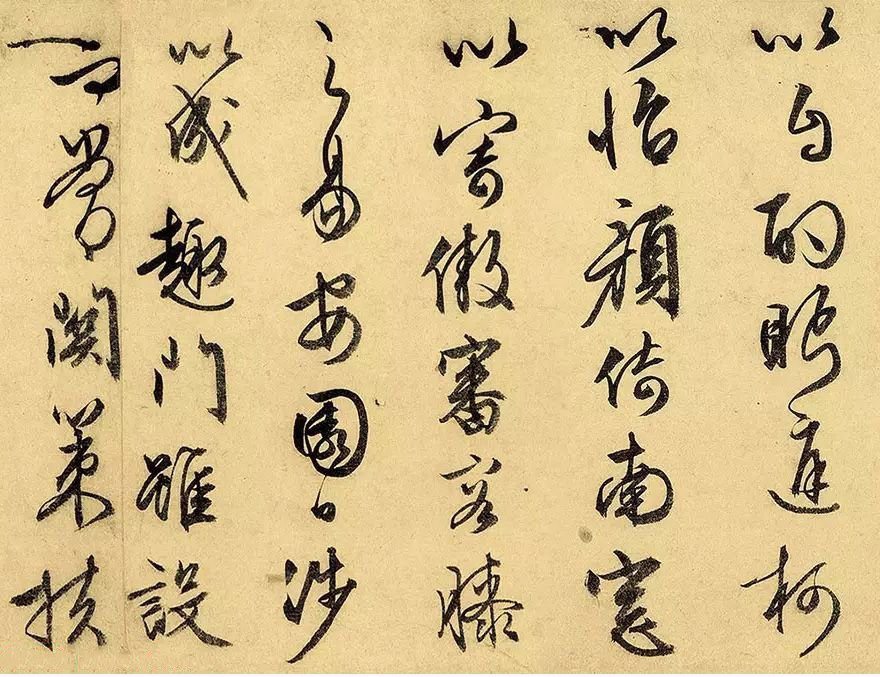 以自酌眄庭柯
以怡顔倚南窓
以寄傲審容膝
之易安園日涉
以成趣門雖設
而常関策扶